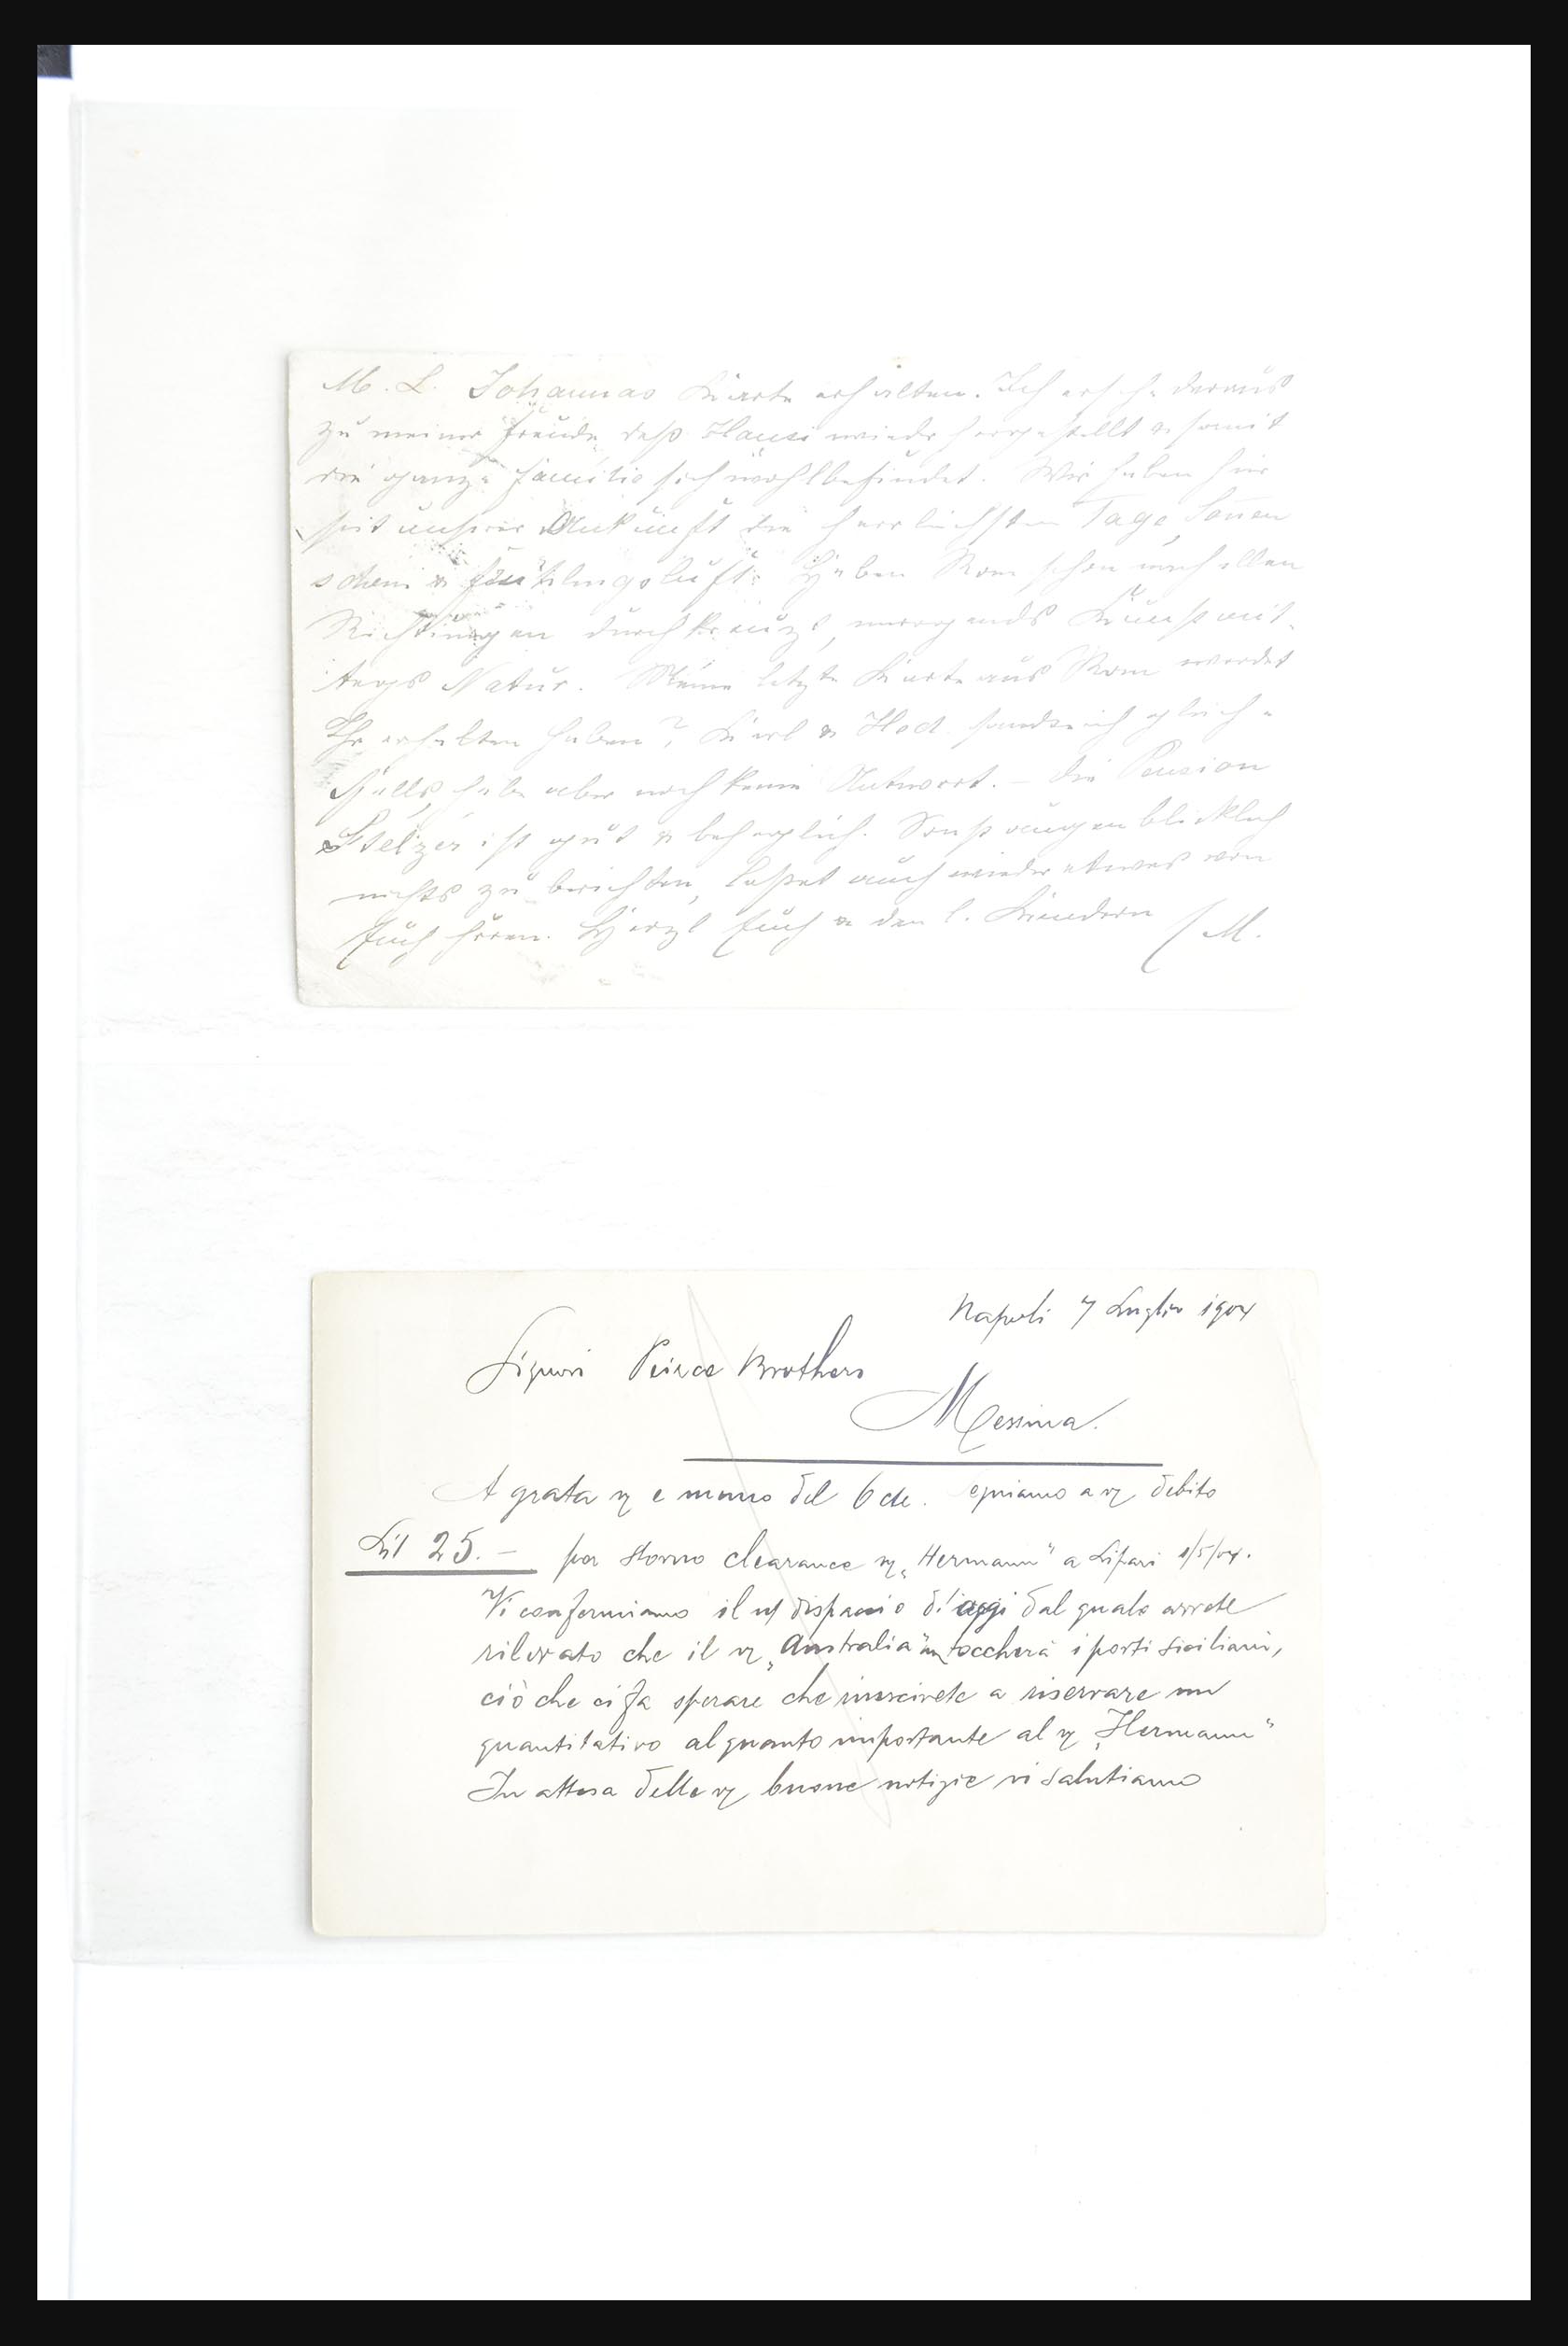 M. L. Johannas Karte erhalten. Ich ersehe daraus
zu meiner Freude, daß Hansi wieder hergestellt & somit
die ganze Familie sich wohlbefindet. Wir haben hier
seit unserer Ankunft die herrlichsten Tage, Sonnen
schein & Frühlingsluft. Haben Rom schon nach allen
Richtungen durchkreuzt, Kunst
Natur. Meine letzte Karte aus Rom werdet
Ihr erhalten haben? Karl & Hed. sandte ich gleich-
falls, habe aber noch keine Antwort. – Die Pension
Stelzer ist gut & behaglich. Sonst augenblicklich
nichts zu berichten, laßet auch wieder etwas von
Euch hören. Herzl Euch & den l. Kindern M.
Napoli 7 Luglio 1904
Signori Peirce Brothers
Messina.
A grata del 6 a debito
Lit 25.– per storno clearance "Hermann" a Lipari 1/5/04.
Vi confermiamo il dispaccio d'oggi dal quale avrete
rilevato che il "Australia" toccherà i porti siciliani,
ciò che ci fa sperare che riuscirete a riservare un
quantitativo alquanto importante al "Hermann"
In attesa delle buone notizie vi salutiamo